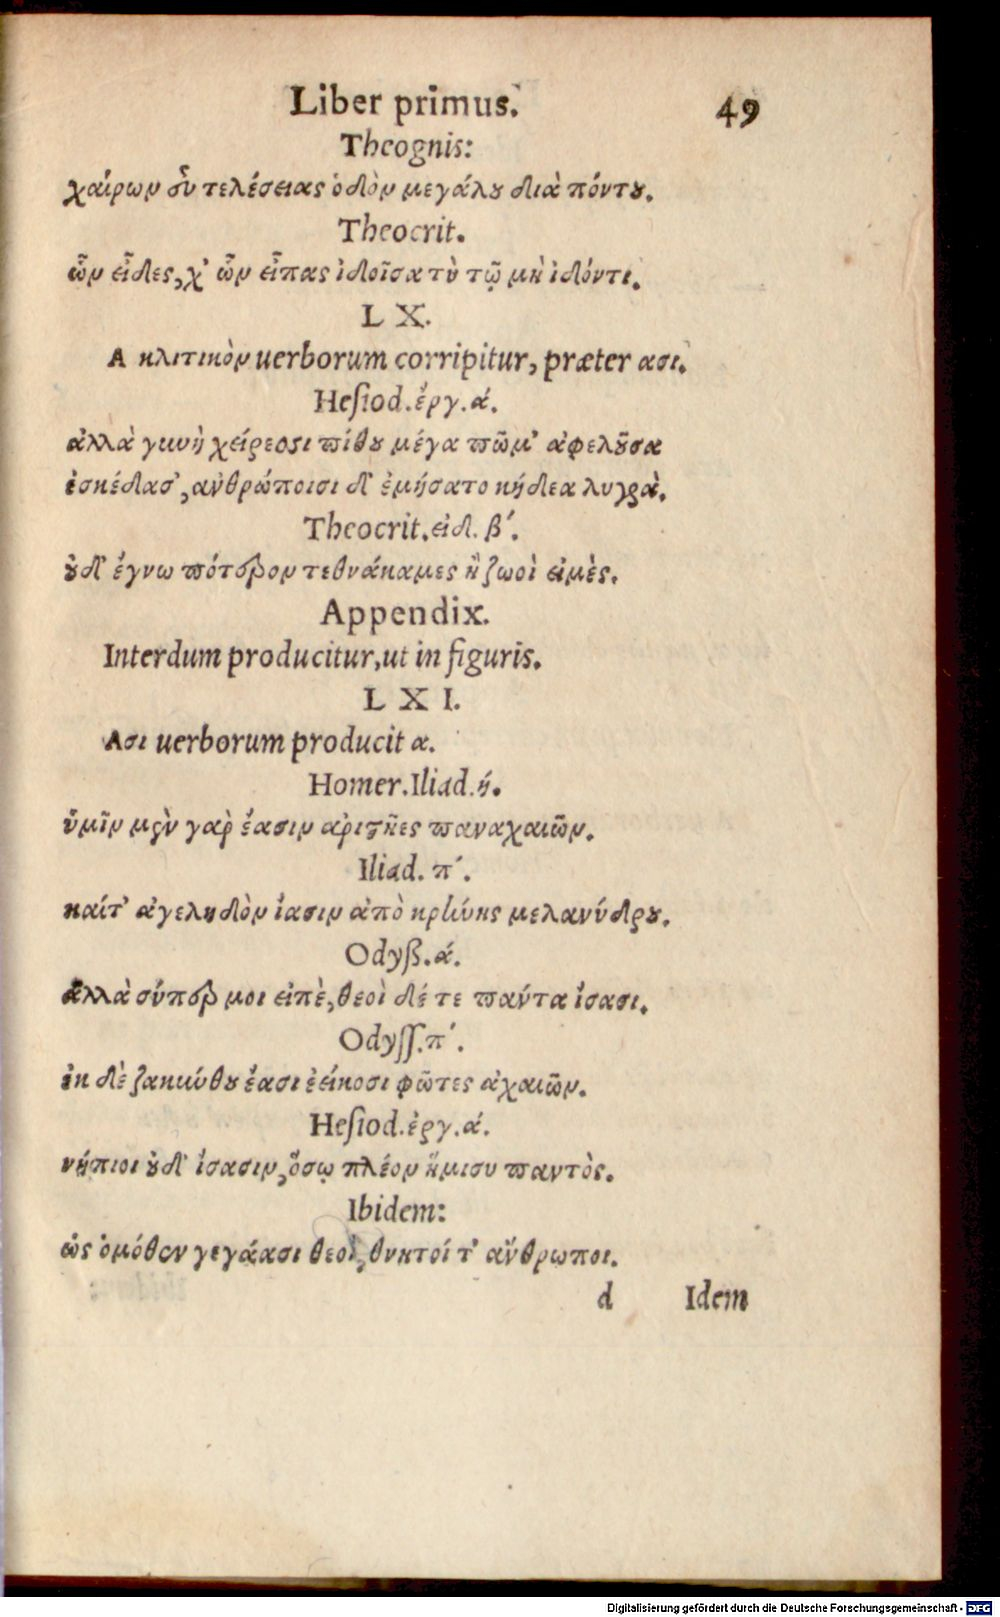 Liber primus. 49
Theognis:
χαίρων εὖ τελέσειας ὁδὸν μεγάλου διὰ πόντου.
Theocrit.
ὧν εἶδες, χ' ὧν εἶπας ἰδοῖσα τὺ τῷ μὴ ἰδόντι.
L X.
Α κλιτικὸν uerborum corripitur, præter ασι.
Hesiod. ἔργ. ά.
ἀλλὰ γυνὴ χείρεσσι πίθου μέγα πῶμ' ἀφελοῦσα
ἐσκέδασ', ἀνθρώποισι δ' ἐμήσατο κήδεα λυγρὰ.
Theocrit. εἰδ. β΄.
οὐδ' ἔγνω πότερον τεθνάκαμες ἢ ζωοὶ εἰμὲς.
Appendix.
Interdum producitur, ut in figuris.
L X I.
Ασι uerborum producit α.
Homer. Iliad. ή.
ὑμῖν μὲν γὰρ ἔασιν ἀριστῆες παναχαιῶν.
Iliad. π΄.
καί τ' ἀγεληδὸν ἴασιν ἀπὸ κρήνης μελανύδρου.
Odyß. ά.
ἀλλὰ σύπερ μοι εἰπὲ, θεοὶ δέ τε πάντα ἴσασι.
Odyss. π΄.
ἐκ δὲ ζακύνθου ἔασι ἐείκοσι φῶτες ἀχαιῶν.
Hesiod. ἐργ. ά.
νήπιοι οὐδ' ἴσασιν, ὅσῳ πλέον ἥμισυ παντὸς.
Ibidem:
ὡς ὁμόθεν γεγάασι θεοὶ, θνητοί τ' ἄνθρωποι.
d Idem
Digitalisierung gefördert durch die Deutsche Forschungsgemeinschaft - DFG